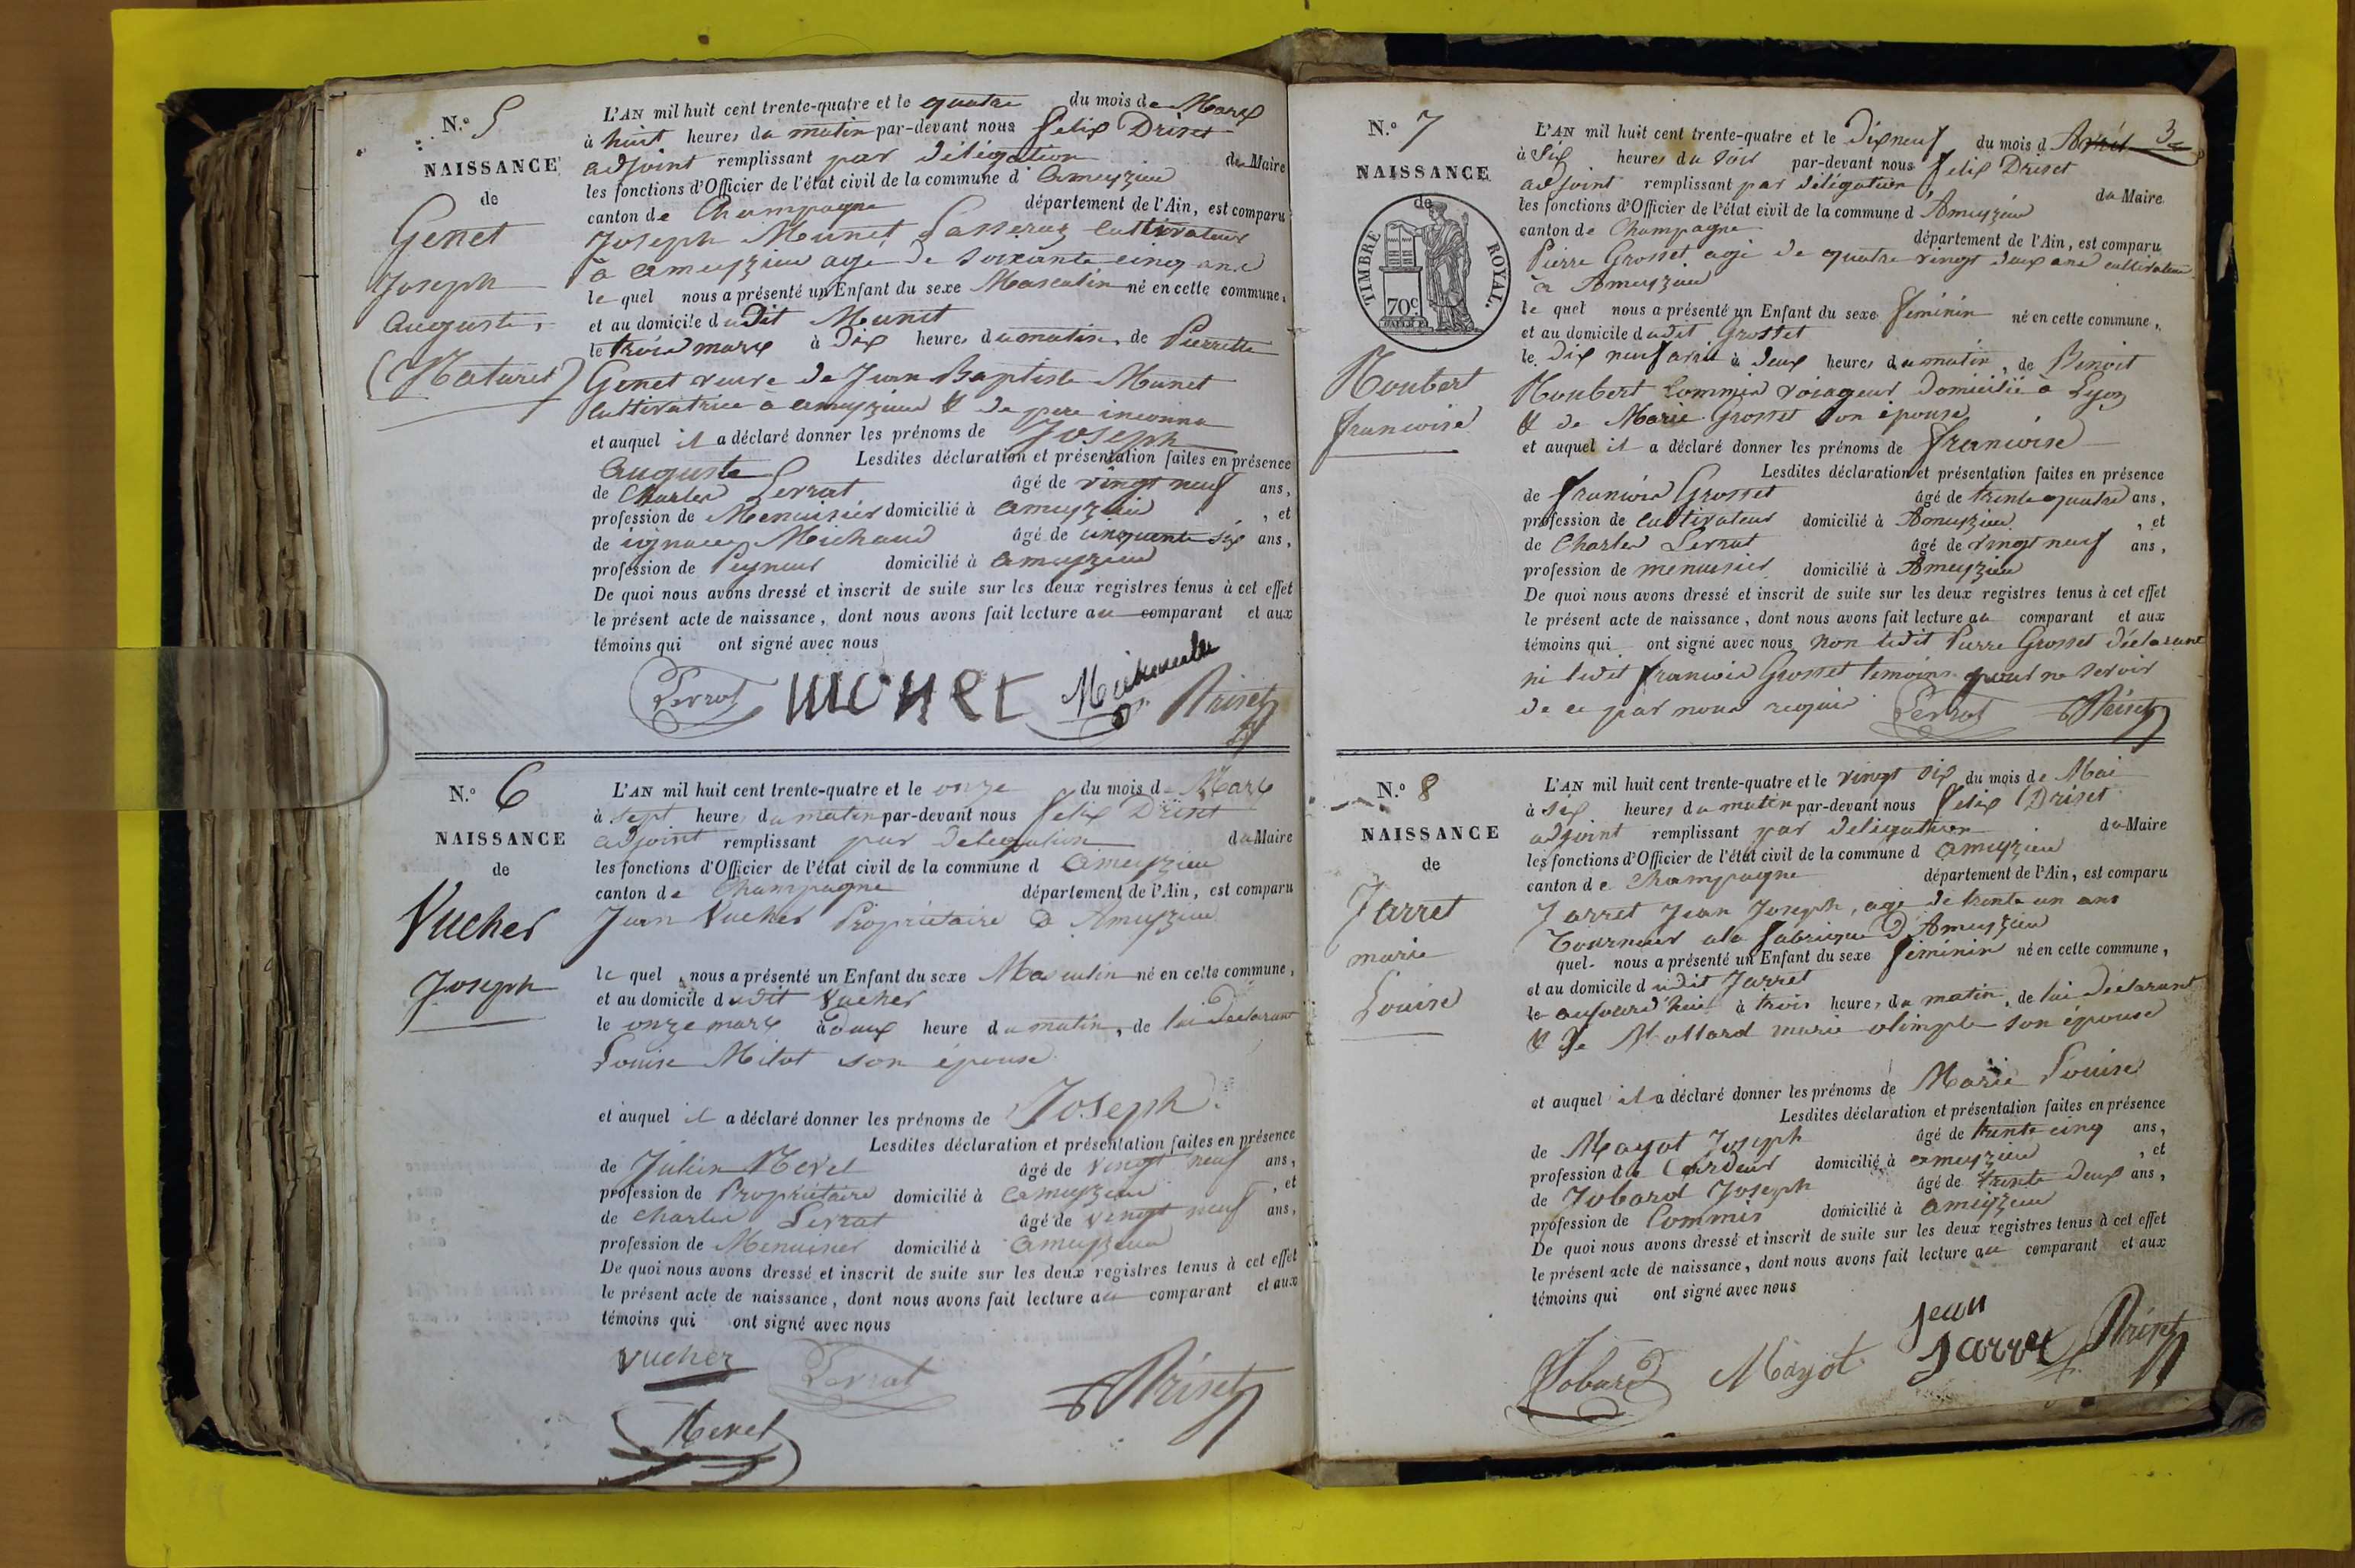 N.º 5
NAISSANCE
de
Genet
Joseph
Auguste,
(Naturel)
L'AN mil huit cent trente-quatre et le quatre du mois de Mars
à huit heures du matin par-devant nous felix Driset
adjoint remplissant par délégation du Maire
les fonctions d'Officier de l'état civil de la commune d'ameyzieu
canton de Champagne département de l'Ain, est comparu
Joseph Munet cultivateur
à ameyzieu agé de soixante cinq ans
le quel nous a présenté un Enfant du sexe Masculin né en cette commune,
et au domicile dudit Munet
le trois mars à dix heures du matin, de Pierrette
Genet veuve de Jean Baptiste Munet
cultivatrice à ameyzieu & de pere inconnu
et auquel il a déclaré donner les prénoms de Joseph
Auguste Lesdites déclaration et présentation faites en présence
de Charles Serrat âgé de vingt neuf ans,
profession de Menuisier domicilié à ameyzieu, et
de ignace Michaud âgé de cinquante six ans,
profession de Peyneur domicilié à ameyzieu
De quoi nous avons dressé et inscrit de suite sur les deux registres tenus à cet effet
le présent acte de naissance, dont nous avons fait lecture au comparant et aux
témoins qui ont signé avec nous
Serrat Driset
N.º 6
NAISSANCE
de
Vucher
Joseph
L'AN mil huit cent trente-quatre et le onze du mois de Mars
à sept heures du matin par-devant nous felix Driset
adjoint remplissant par delegation du Maire
les fonctions d'Officier de l'état civil de la commune d ameyzieu
canton de Champagne département de l'Ain, est comparu
Jean Vucher Propriétaire à Ameyzieu
le quel nous a présenté un Enfant du sexe Masculin né en cette commune,
et au domicile dudit Vucher
le onze mars à deux heure du matin, de lui declarant
Louise Milot son épouse
et auquel il a déclaré donner les prénoms de Joseph.
Lesdites déclaration et présentation faites en présence
de Julien Revel âgé de vingt neuf ans,
profession de Propriétaire domicilié à ameyzieu, et
de Charles Serrat âgé de vingt neuf ans,
profession de Menuisier domicilié à ameyzieu
De quoi nous avons dressé et inscrit de suite sur les deux registres tenus à cet effet
le présent acte de naissance, dont nous avons fait lecture au comparant et aux
témoins qui ont signé avec nous
Vucher Serrat Driset
Revel
3
N.º 7
NAISSANCE
de
TIMBRE ROYAL.
70c
Roubert
francoise
L'AN mil huit cent trente-quatre et le dix neuf du mois d Avril
à six heures du soir par-devant nous felix Driset
adjoint remplissant par délégation du Maire
les fonctions d'Officier de l'état civil de la commune d'Ameyzieu
canton de Champagne département de l'Ain, est comparu
Pierre Grosset agé de quatre vingt deux ans cultivateur
à Ameyzieu
le quel nous a présenté un Enfant du sexe féminin né en cette commune,
et au domicile dudit Grosset
le dix neuf avril à deux heures du matin, de Benoit
Roubert commis voiageur domicilié à Lyon
& de Marie Grosset son épouse
et auquel il a déclaré donner les prénoms de francoise
Lesdites déclaration et présentation faites en présence
de francois Grosset âgé de trente quatre ans,
profession de cultivateur domicilié à Ameyzieu, et
de Charles Serrat âgé de vingt neuf ans,
profession de menuisier domicilié à Ameyzieu
De quoi nous avons dressé et inscrit de suite sur les deux registres tenus à cet effet
le présent acte de naissance, dont nous avons fait lecture au comparant et aux
témoins qui ont signé avec nous non ledit Pierre Grosset déclarant
ni ledit francois Grosset temoins pour ne savoir
de ce par nous requis Serrat Driset
N.º 8
NAISSANCE
de
Jarret
marie
Louise
L'AN mil huit cent trente-quatre et le vingt six du mois de Mai
à six heures du matin par-devant nous felix Driset
adjoint remplissant par delegation du Maire
les fonctions d'Officier de l'état civil de la commune d ameyzieu
canton de Champagne département de l'Ain, est comparu
Jarret Jean Joseph, agé de trente un ans
Tourneur a la fabrique d'Ameyzieu
quel nous a présenté un Enfant du sexe féminin né en cette commune,
et au domicile dudit Jarret
le aujourd'hui à trois heures du matin, de lui déclarant
& de marie olimpe son épouse
et auquel il a déclaré donner les prénoms de Marie Louise
Lesdites déclaration et présentation faites en présence
de Mayot Joseph âgé de trente cinq ans,
profession de Cardeur domicilié à ameyzieu, et
de Jobard Joseph âgé de trente deux ans,
profession de Commis domicilié à ameyzieu
De quoi nous avons dressé et inscrit de suite sur les deux registres tenus à cet effet
le présent acte de naissance, dont nous avons fait lecture au comparant et aux
témoins qui ont signé avec nous
Jobard Mayot Jean Jarret Driset